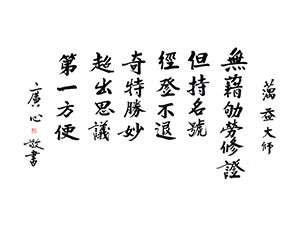 蕅益大師
無藉劬勞修證
但持名號
徑登不退
奇特勝妙
超出思議
第一方便
廣心敬書